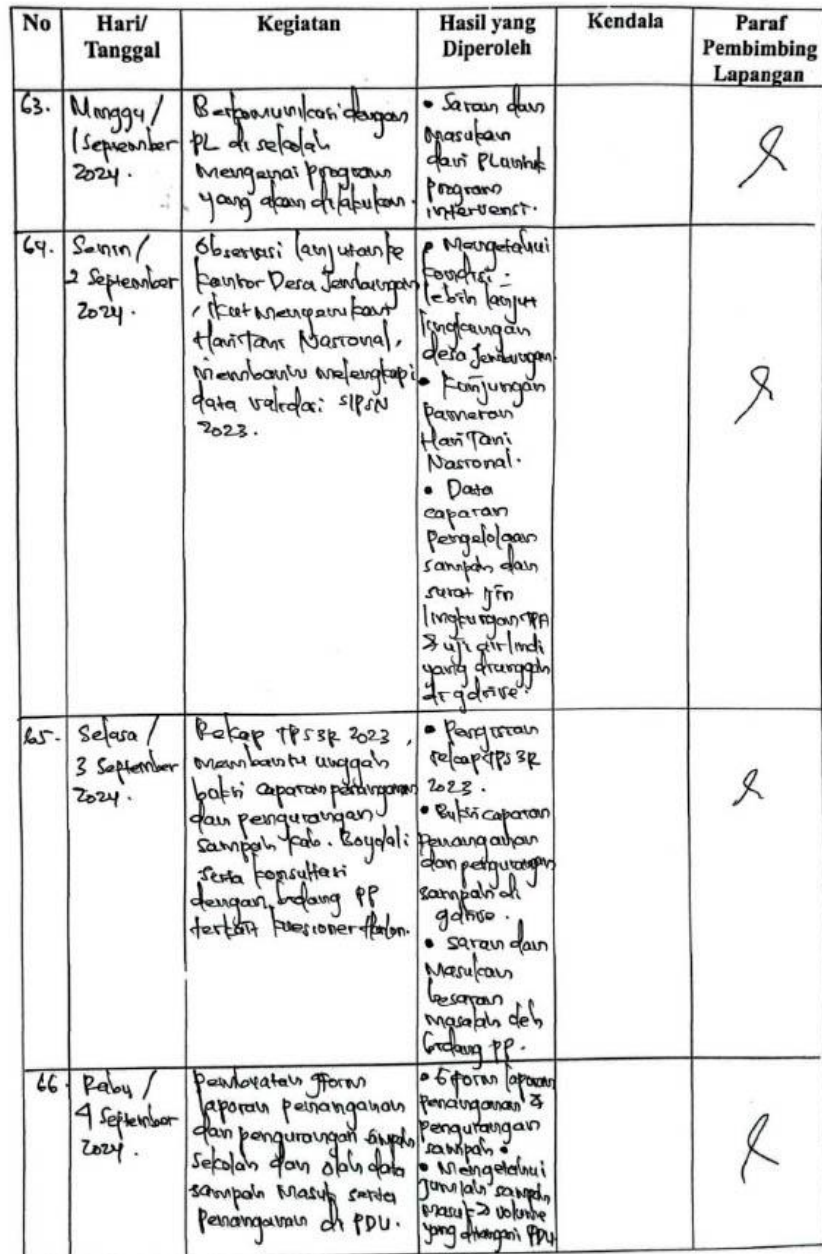 No
Hari/
Tanggal
Kegiatan
Hasil yang
Diperoleh
Kendala
Paraf
Pembimbing
Lapangan
63.
Minggu /
1 September
2024.
Berkomunikasi dengan
PL di sekolah
mengenai program
yang akan dilakukan.
• Saran dan
masukan
dari PL untuk
program
intervensi.
64.
Senin /
2 September
2024.
Observasi lanjutan ke
kantor Desa Jembungan
, ikut mengunjungi
Hari Tani Nasional,
membantu melengkapi
data validasi SIPSN
2023.
• Mengetahui
kondisi
lebih lanjut
lingkungan
desa Jembungan.
• Kunjungan
pameran
Hari Tani
Nasional.
• Data
caparan
pengelolaan
sampah dan
surat ijin
lingkungan TPA
& uji air lindi
yang diunggah
di gdrive.
65.
Selasa /
3 September
2024.
Rekap TPS3R 2023,
membantu unggah
bukti caparan penanganan
dan pengurangan
sampah kab. Boyolali
serta konsultasi
dengan bidang PP
terkait kuesioner
• Pengisian
rekap TPS 3R
2023.
• Bukti caparan
penanganan
dan pengurangan
sampah di
gdrive.
• Saran dan
masukan
besaran
masalah oleh
bidang PP.
66.
Rabu /
4 September
2024.
Pembuatan gform
laporan penanganan
dan pengurangan sampah
sekolah dan olah data
sampah masuk serta
penanganan di PDU.
• gform laporan
penanganan &
pengurangan
sampah.
• Mengetahui
jumlah sampah
masuk & volume
yang ditangani PDU